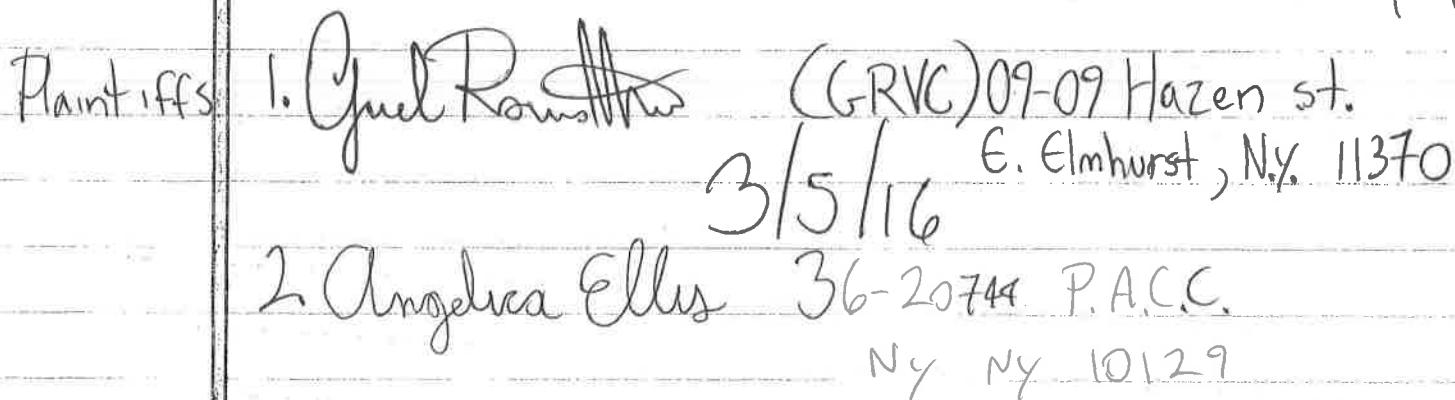 Plaintiffs 1. (GRVC) 09-09 Hazen st.
E. Elmhurst, N.Y. 11370
3/5/16
2. Angelica Ellis 36-20744 P.A.C.C.
Ny Ny 10129